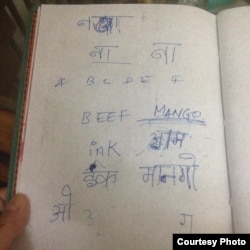 ना ना
A B C D E F
BEEF MANGO
INK आम
इंक मानगो
ओ उ ग
Courtesy Photo